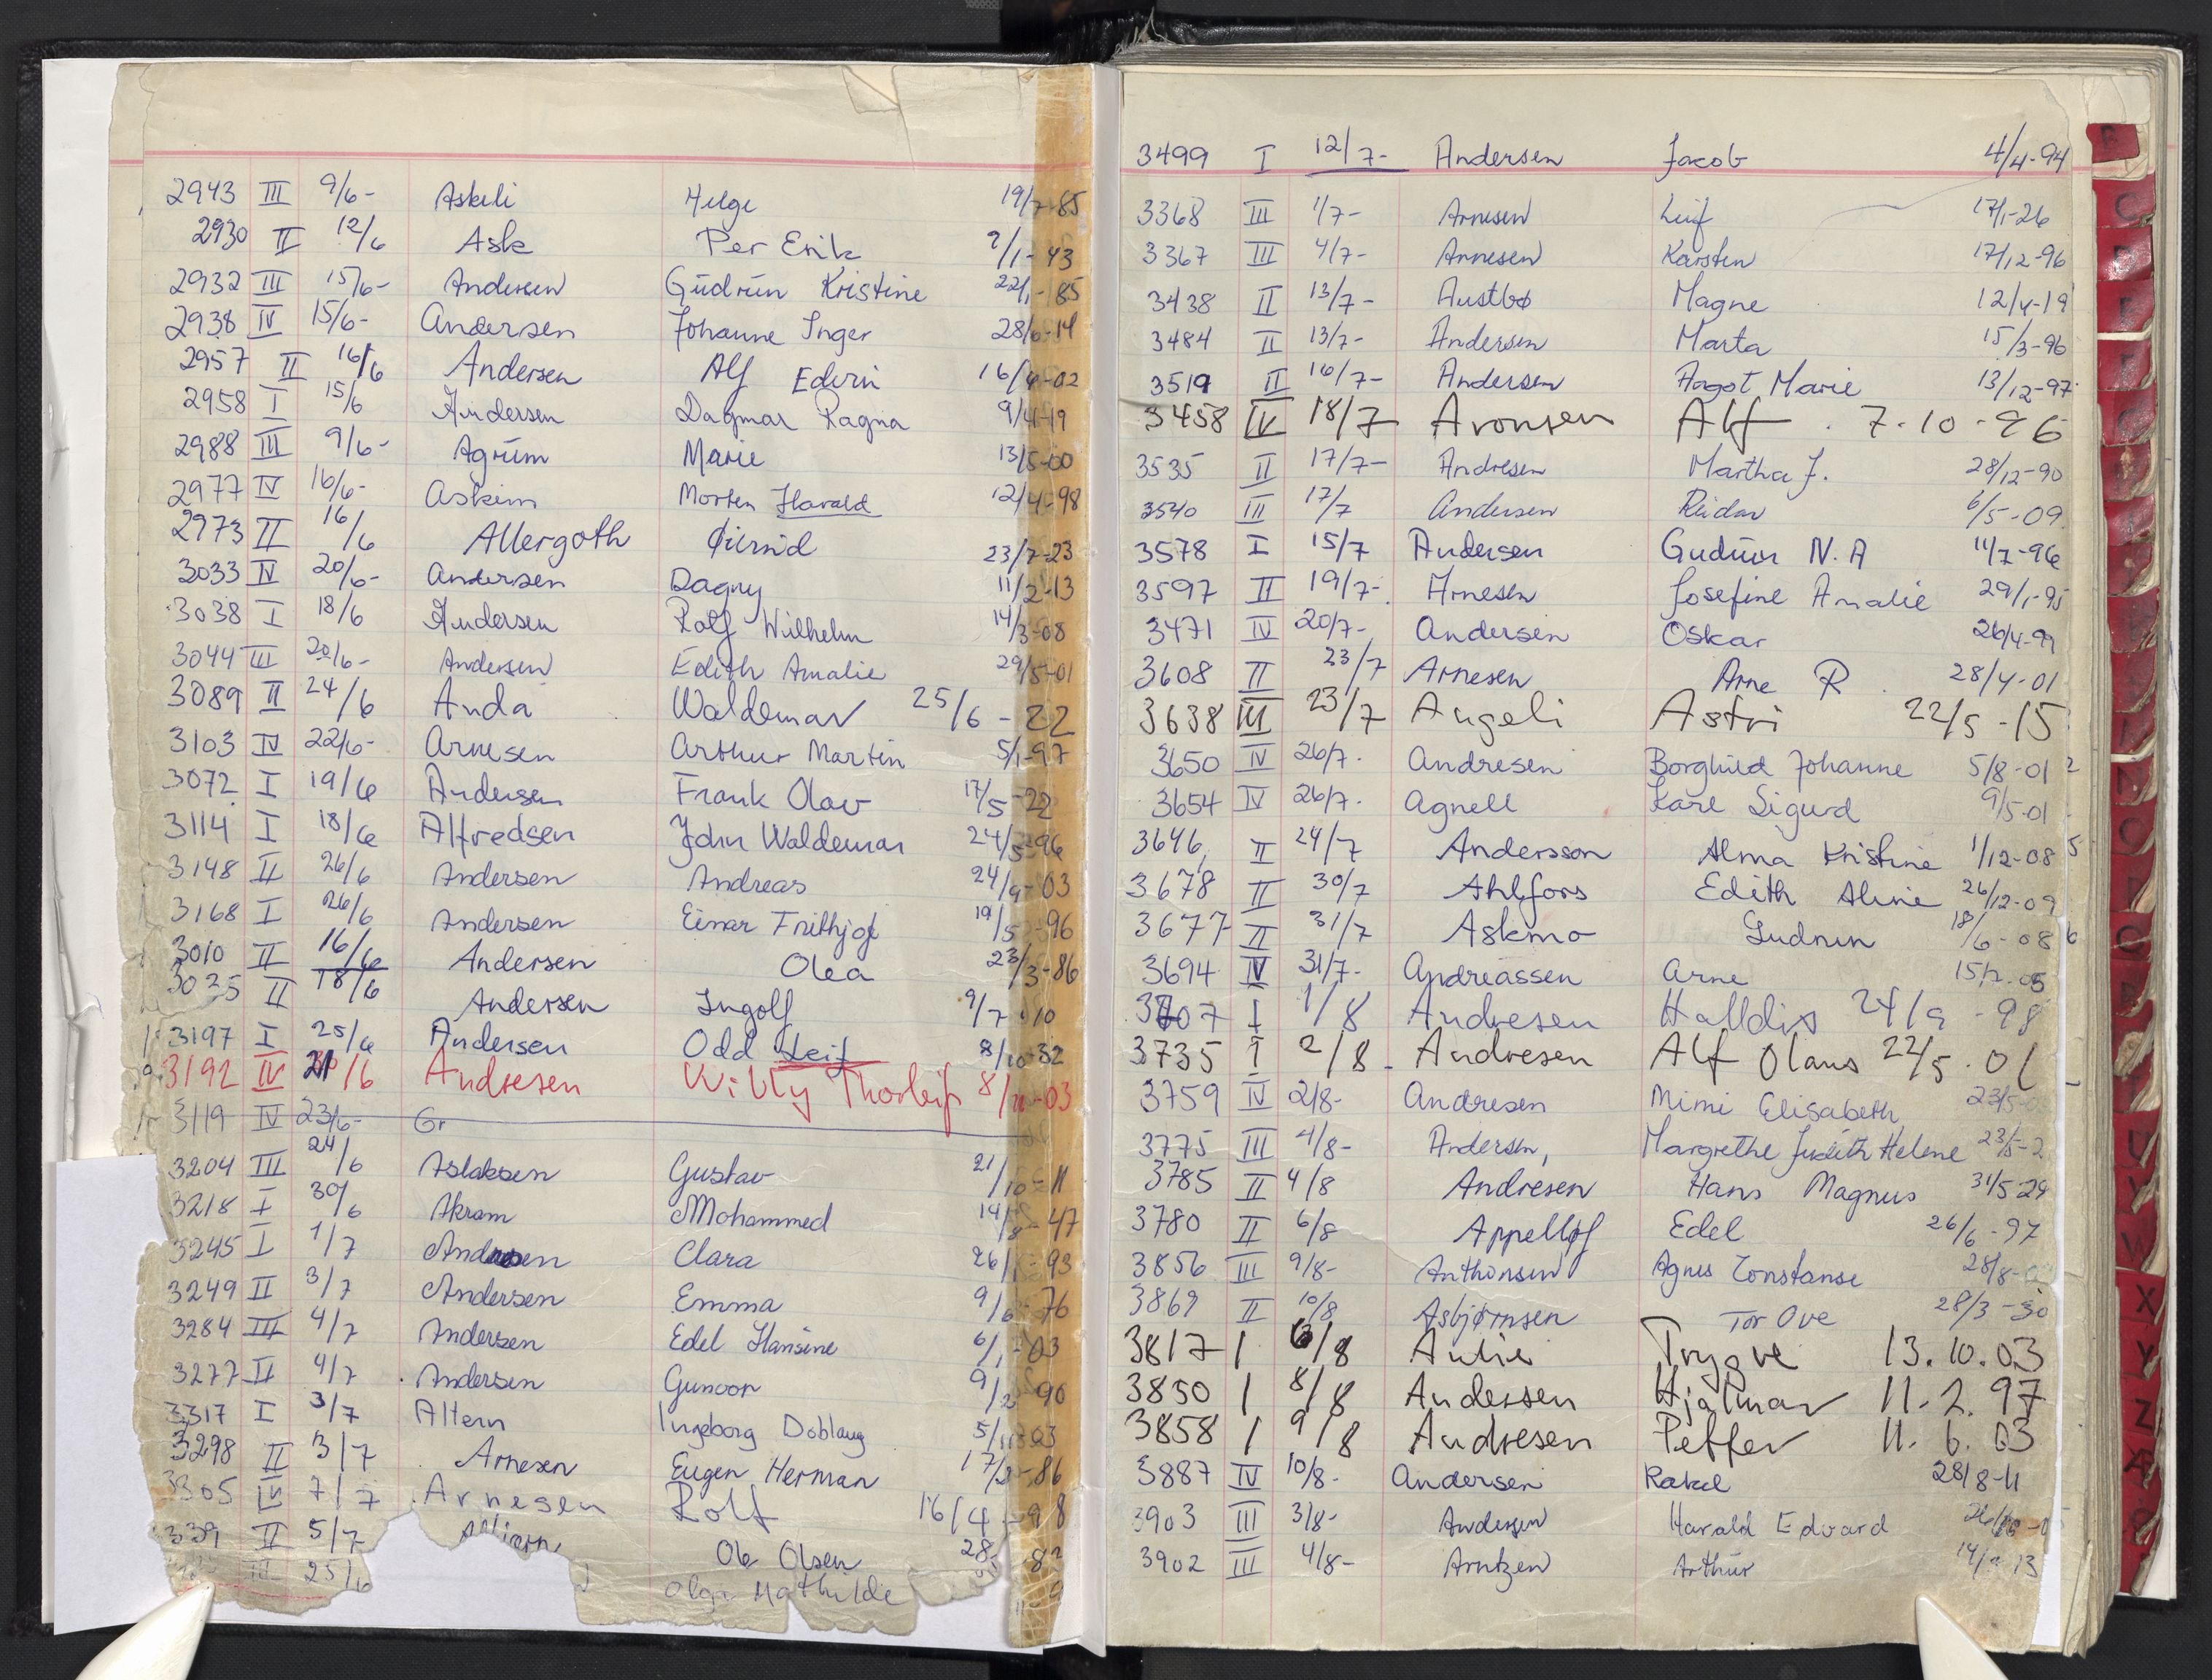 2943 III 9/6- Askeli Helge 19/7-85
2930 II 12/6 Ask Per Erik 2/1-43
2932 III 15/6- Andersen Gudrun Kristine 22/1-85
2938 IV 15/6- Andersen Johanne Inger 28/6-14
2957 II 16/6 Andersen Alf Edvin 16/4-02
2958 I 15/6 Andersen Dagmar Ragna 9/4-19
2988 III 9/6- Agrum Marie 13/5-00
2977 IV 16/6- Askim Morten Harald 12/4-98
2973 II 16/6 Allergoth 23/7-23
3033 IV 20/6- Andersen Dagny 11/2-13
3038 I 18/6 Andersen Rolf Wilhelm 14/3-08
3044 III 20/6- Andersen Edith Amalie 29/5-01
3089 II 24/6 Anda Waldemar 25/6-22
3103 IV 22/6- Arnesen Arthur Martin 5/1-97
3072 I 19/6 Andersen Frank Olav 17/5-22
3114 I 18/6 Alfredsen John Waldemar 24/5-96
3148 II 26/6 Andersen Andreas 24/9-03
3168 I 26/6 Andersen Einar Frithjof 19/5-96
3010 II 16/6 Andersen Olea 23/3-86
3035 II 18/6 Andersen Ingolf 9/7-10
3197 I 25/6 Andersen Odd Leif 8/10-32
3192 IV 21/6 Andresen Willy Thorleif 8/11-03
3119 IV 23/6- Gr
3204 III 24/6 Aslaksen Gustav 21/10-11
3218 I 30/6 Akram Mohammed 14/8-47
3245 I 1/7 Andresen Clara 26/ -93
3249 II 3/7 Andersen Emma 9/6-76
3284 III 4/7 Andersen Edel Hansine 6/1-03
3277 II 4/7 Andersen Gunvor 9/2-90
3317 I 3/7 Altern Ingeborg Doblaug 5/11-03
3298 II 3/7 Arnesen Eugen Herman 17/2-86
3305 IV 7/7 Arnesen Rolf 16/4-98
339 II 5/7 Ole Olsen 28
25/6 Olga Mathilde
3499 I 12/7- Andersen Jacob 4/4-94
3368 III 1/7- Arnesen Leif 17/1-26
3367 III 4/7- Arnesen Karsten 17/12-96
3438 II 13/7- Austbø Magne 12/4-19
3484 II 13/7- Andersen Marta 15/3-96
3519 II 16/7- Andersen Aagot Marie 13/12-97
3458 IV 18/7 Aronsen Alf 7.10-96
3535 II 17/7- Andresen Martha J. 28/12-90
3540 III 17/7 Andersen Reidar 6/5-09
3578 I 15/7 Andersen Gudrun N. A 11/7-96
3597 II 19/7- Arnesen Josefine Amalie 29/1-95
3471 IV 20/7- Andersen Oskar 26/4-99
3608 II 23/7 Arnesen Arne R. 28/4-01
3638 III 23/7 Angeli Astri 22/5-15
3650 IV 26/7. Andresen Borghild Johanne 5/8-01
3654 IV 26/7. Agnell Karl Sigurd 9/5-01
3646 II 24/7 Andersson Alma Kristine 1/12-08
3678 II 30/7 Ahlfors Edith Aline 26/12-09
3677 II 31/7 Askmo Gudrun 18/6-08
3694 IV 31/7- Andreassen Arne 15/2-05
3707 I 1/8 Andresen Halldis 24/9-98
3735 I 2/8- Andresen Alf Olaus 22/5.01
3759 IV 2/8- Andresen Mimi Elisabeth 23/5
3775 III 4/8- Andersen, Margrethe Judith Helene 23/5-2
3785 II 4/8 Andresen Hans Magnus 31/5-29
3780 II 6/8 Appelløf Edel 26/6-97
3856 III 9/8- Anthonsen Agnes Constanse 28/8-
3869 II 10/8 Asbjørnsen Tor Ove 28/3-30
3817 I 6/8 Aulie Trygve 13.10.03
3850 I 8/8 Andersen Hjalmar 11.2.97
3858 I 9/8 Andresen Petter 11.6.03
3887 IV 10/8- Andersen Rakel 28/8-11
3903 III 3/8- Andersen Harald Edvard
3902 III 4/8- Arntzen Arthur 14/ 13
C
X
Y
Z
Æ